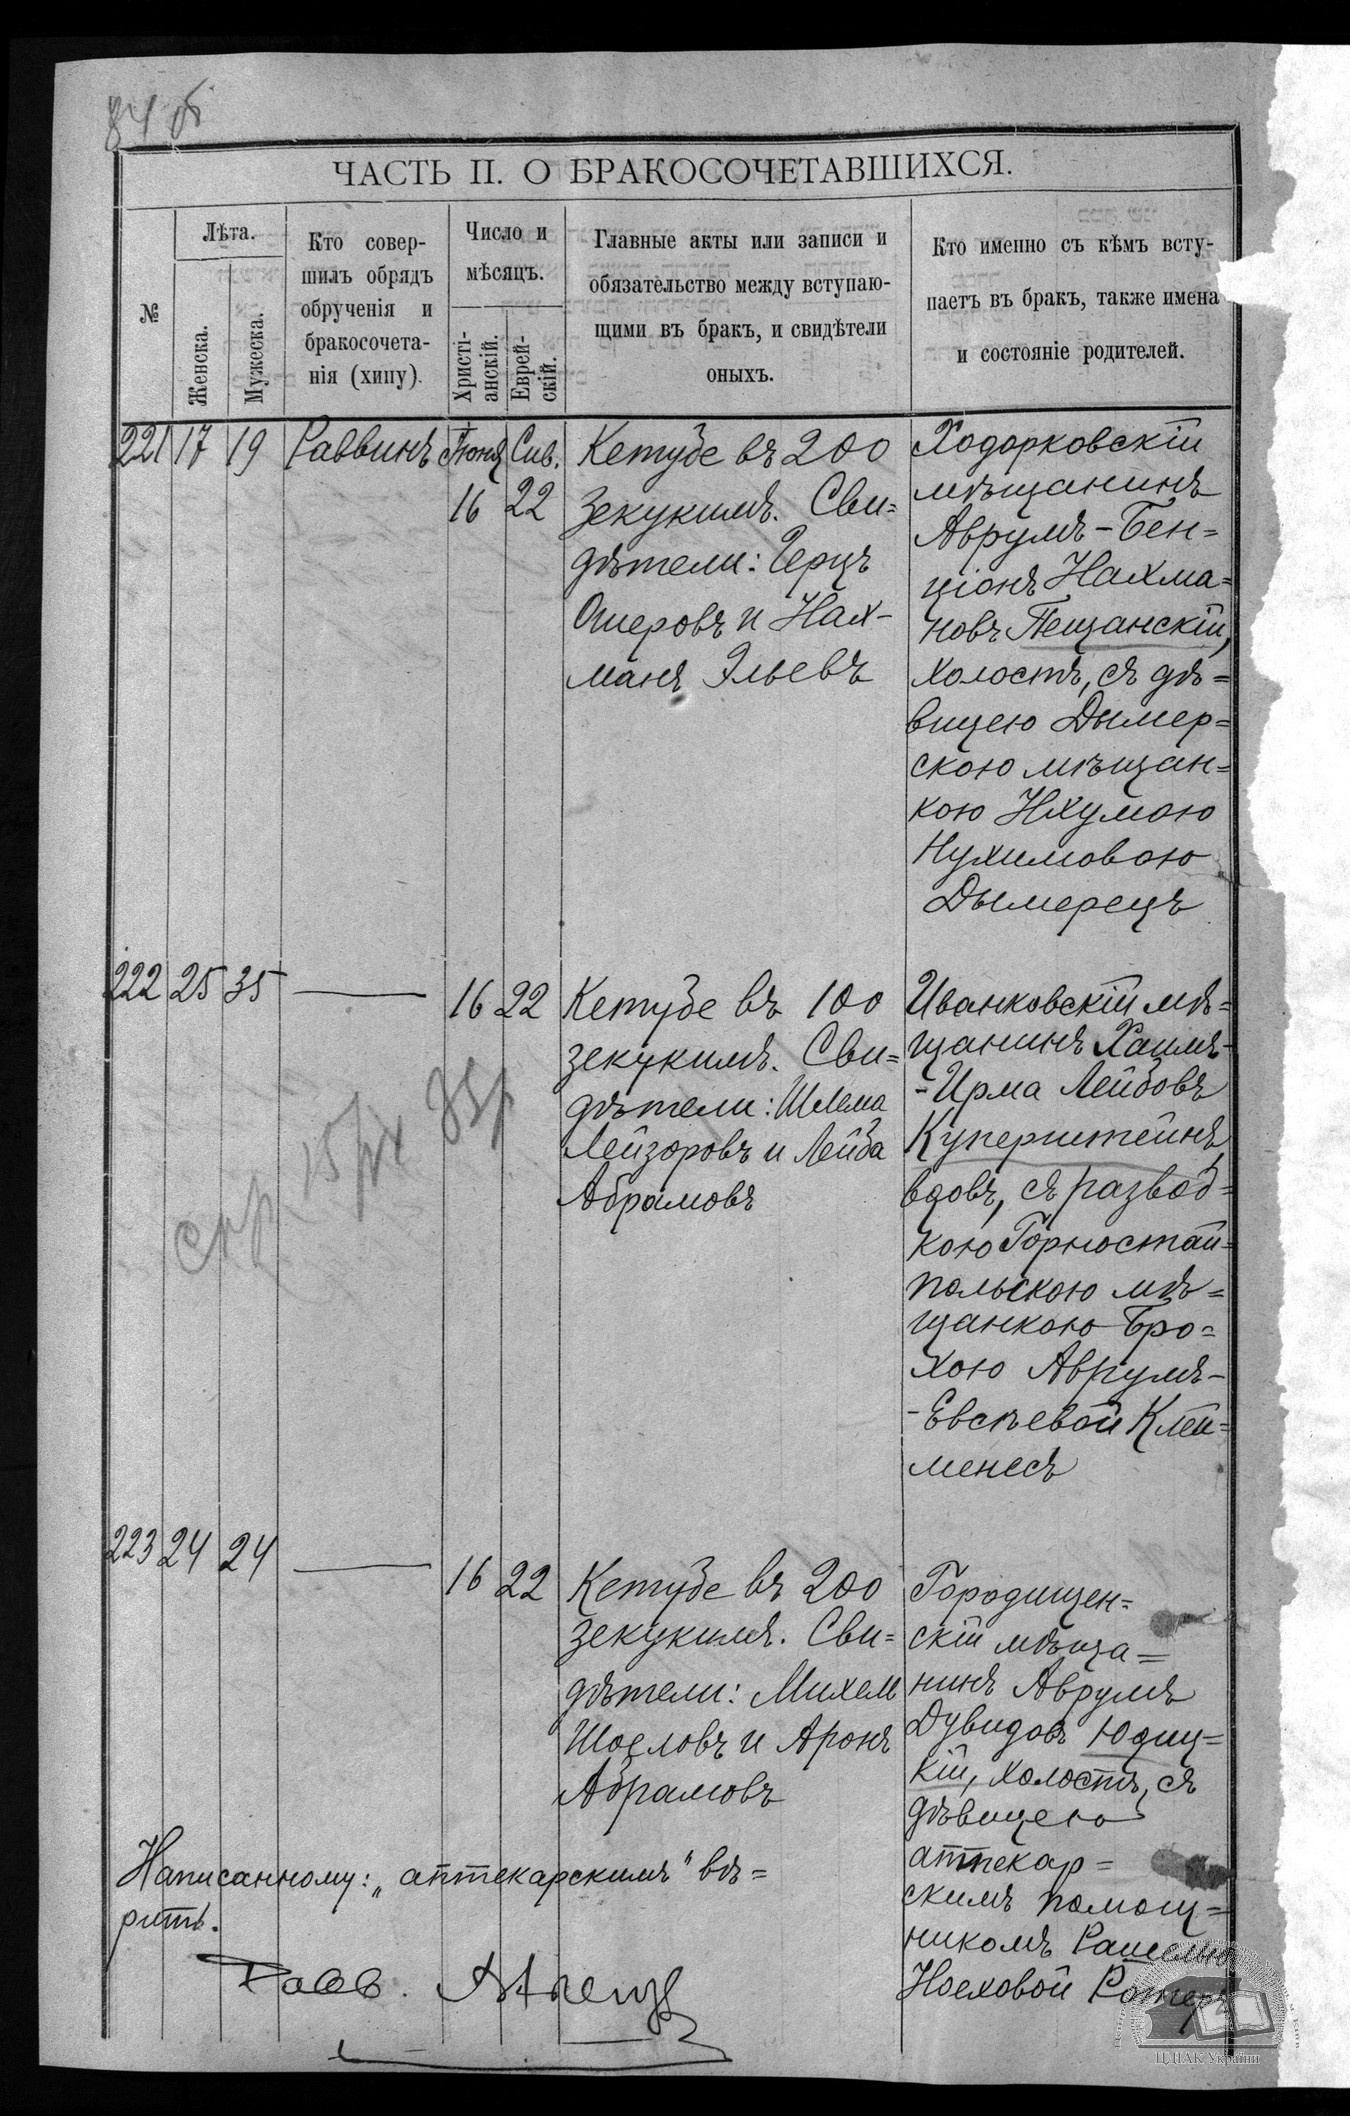 ЧАСТЬ II. О БРАКОСОЧЕТАВШИХСЯ.
№
Лѣта.
Женска.
Мужеска.
Кто совер-
шилъ обрядъ
обрученія и
бракосочета-
нія (хипу).
Число и
мѣсяцъ.
Христі-
анскій.
Еврей-
скій.
Главные акты или записи и
обязательство между вступаю-
щими въ бракъ, и свидѣтели
оныхъ.
Кто именно съ кѣмъ всту-
паетъ въ бракъ, также имена
и состояніе родителей.
221 17 19 Раввинъ Іюня Сив.
16 22
Кетубе въ 200
зекукимъ. Сви=
дѣтели: Герцъ
Ошеровъ и Нах-
манъ Эльевъ
Ходорковскій
мѣщанинъ
Аврумъ-Бен=
ціонъ Нахма=
новъ Пещанскій,
холостъ, съ дѣ=
вицею Дымер=
скою мѣщан=
кою Нхумою
Нухимовою
Дымерецъ
222 25 35 — 16 22
Кетубе въ 100
зекукимъ. Сви=
дѣтели: Шлема
Лейзоровъ и Лейба
Абрамовъ
Иванковскій мѣ=
щанинъ Хаимъ-
-Ирма Лейбовъ
Куперштейнъ,
вдовъ, съ развод=
кою Горностай=
польскою мѣ=
щанкою Бро=
хою Аврумъ-
-Евсѣевой Клей=
менесъ
223 24 24 — 16 22
Кетубе въ 200
зекукимъ. Сви=
дѣтели: Михель
Шоеловъ и Аронъ
Абрамовъ
Городищен=
скій мѣща=
нинъ Аврумъ
Дувидовъ Юдиц=
кій, холостъ, съ
дѣвицею
аптекар=
скимъ помощ=
никомъ Рашелью
Ноеховой Ротеръ
Написанному: „аптекарскимъ" вѣ=
рить.
Равв.
ЦДІАК України